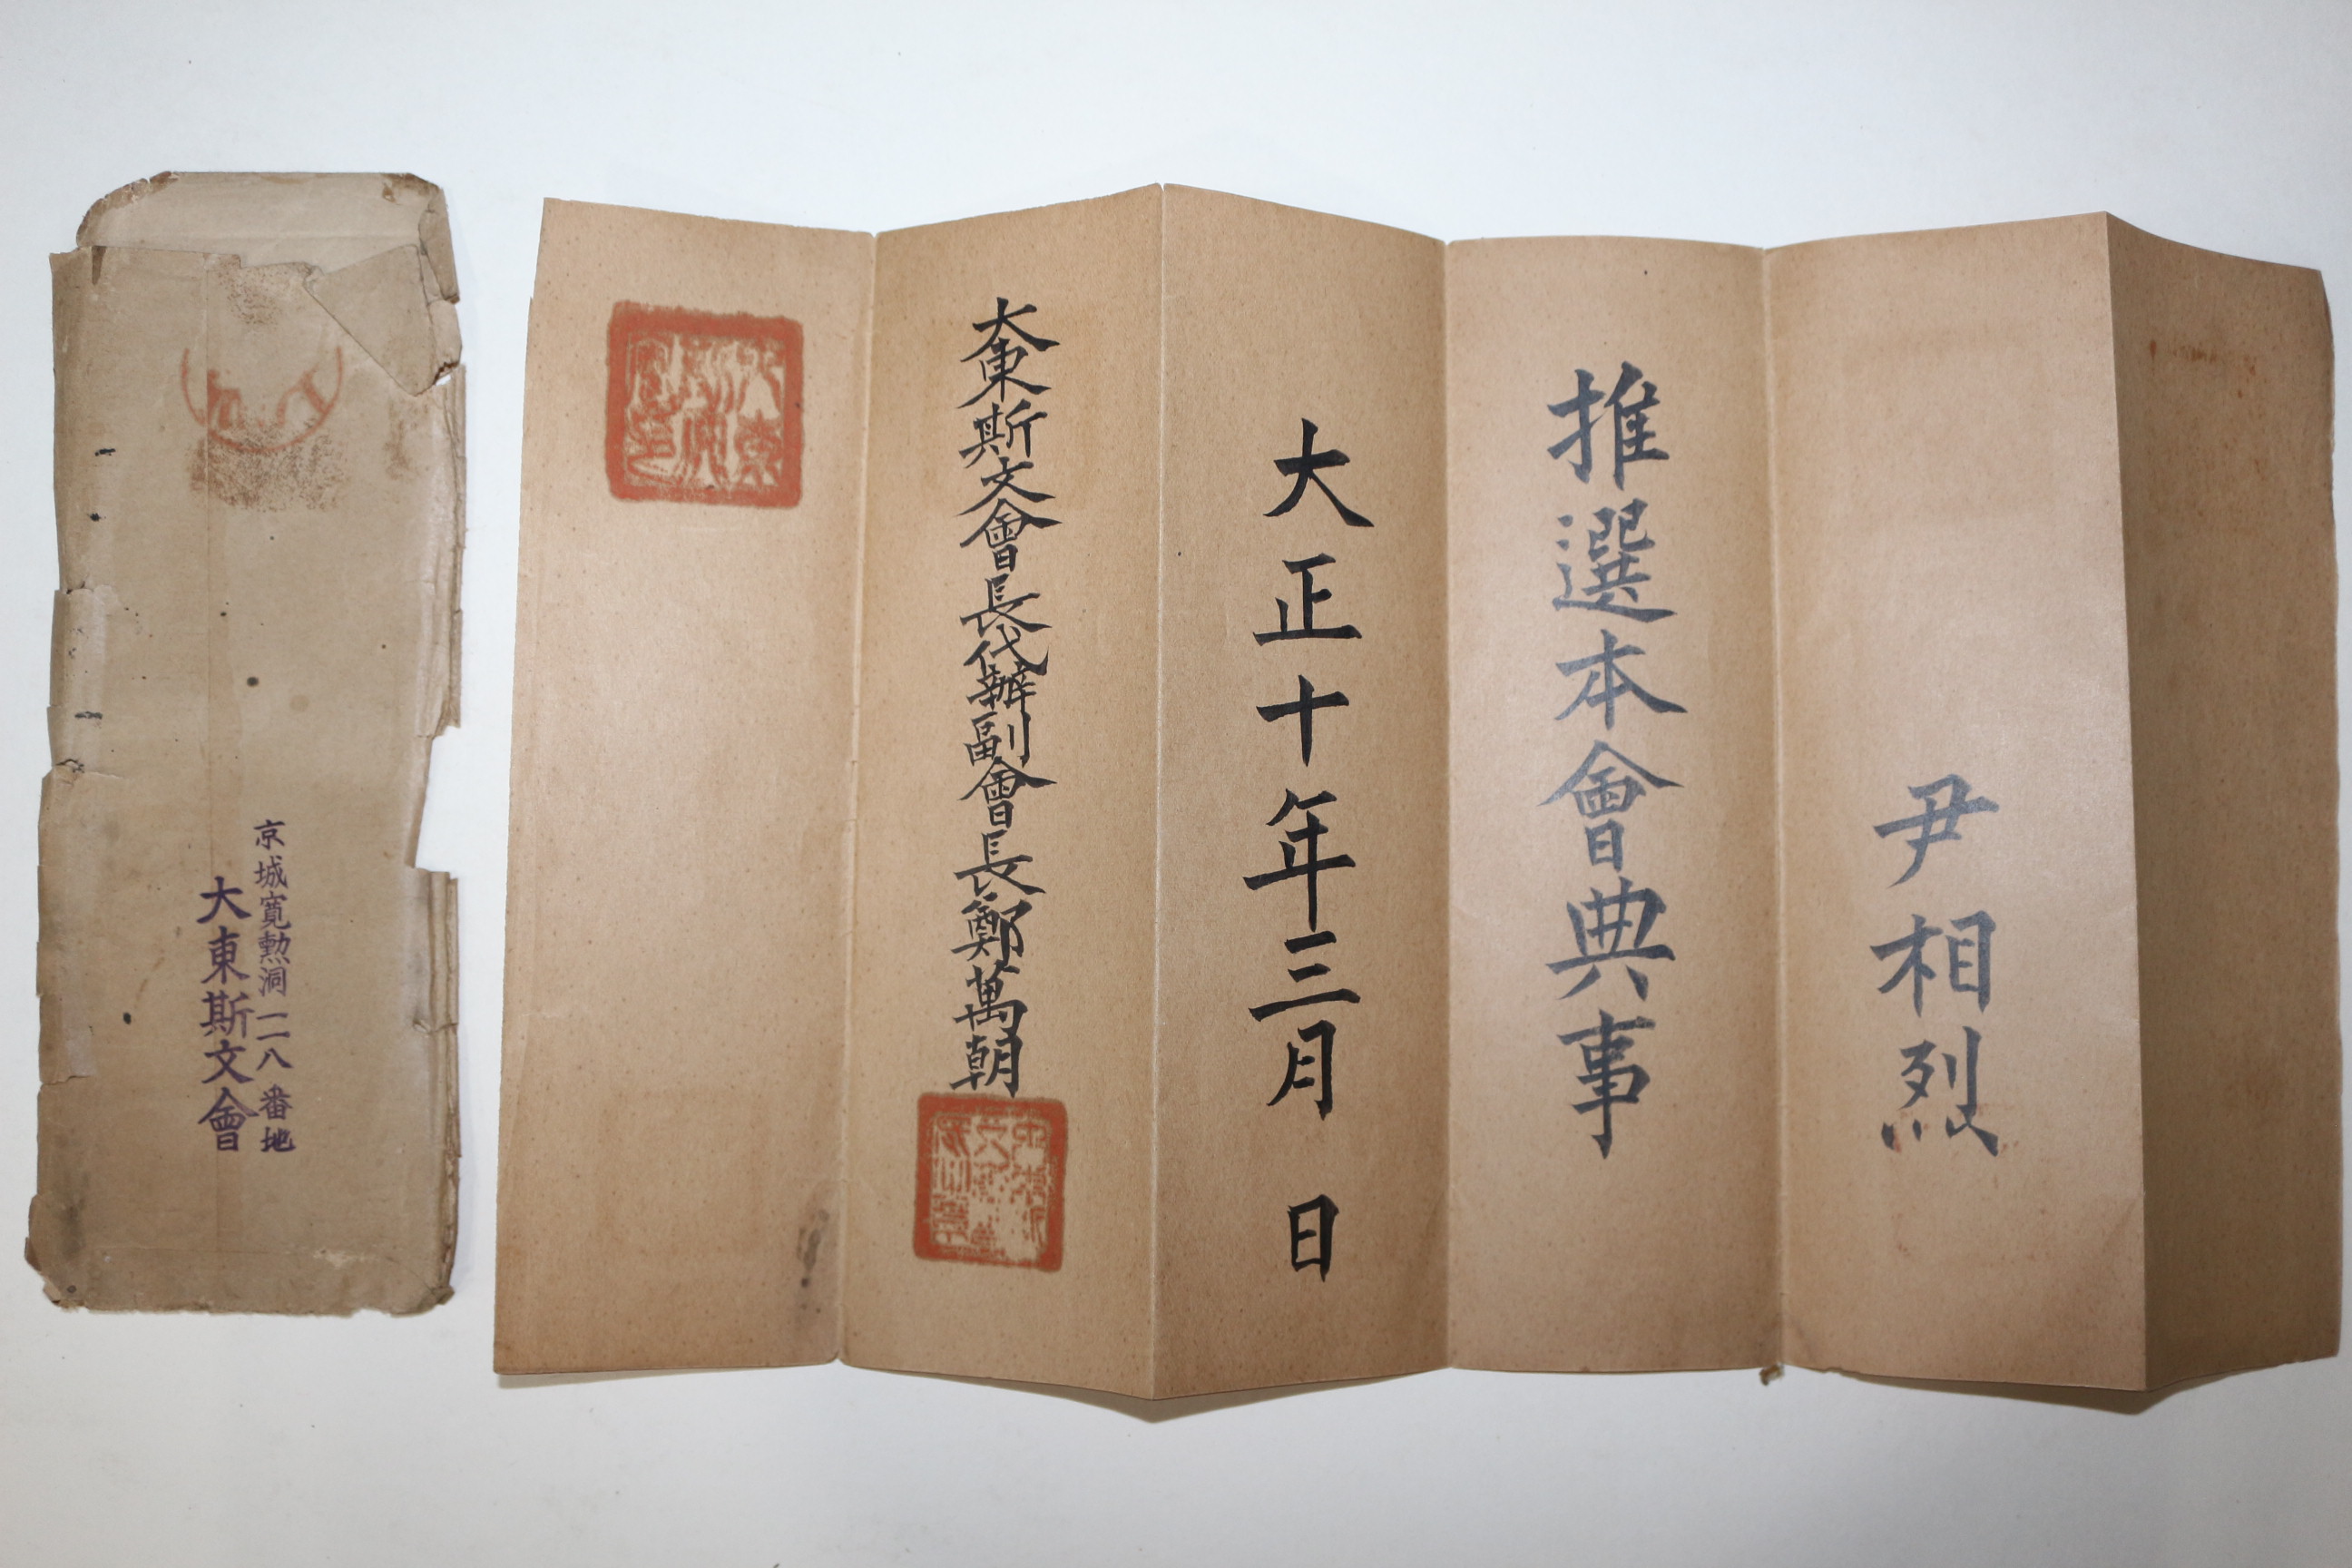 尹相烈
推選本會典事
大正十年三月 日
大東斯文會長代辦副會長鄭萬朝
京城寬勲洞一二八番地
大東斯文會